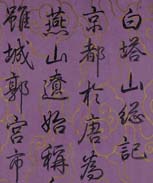 白塔山総記
京都於唐為
燕山遼始稱
雖城郭宮市